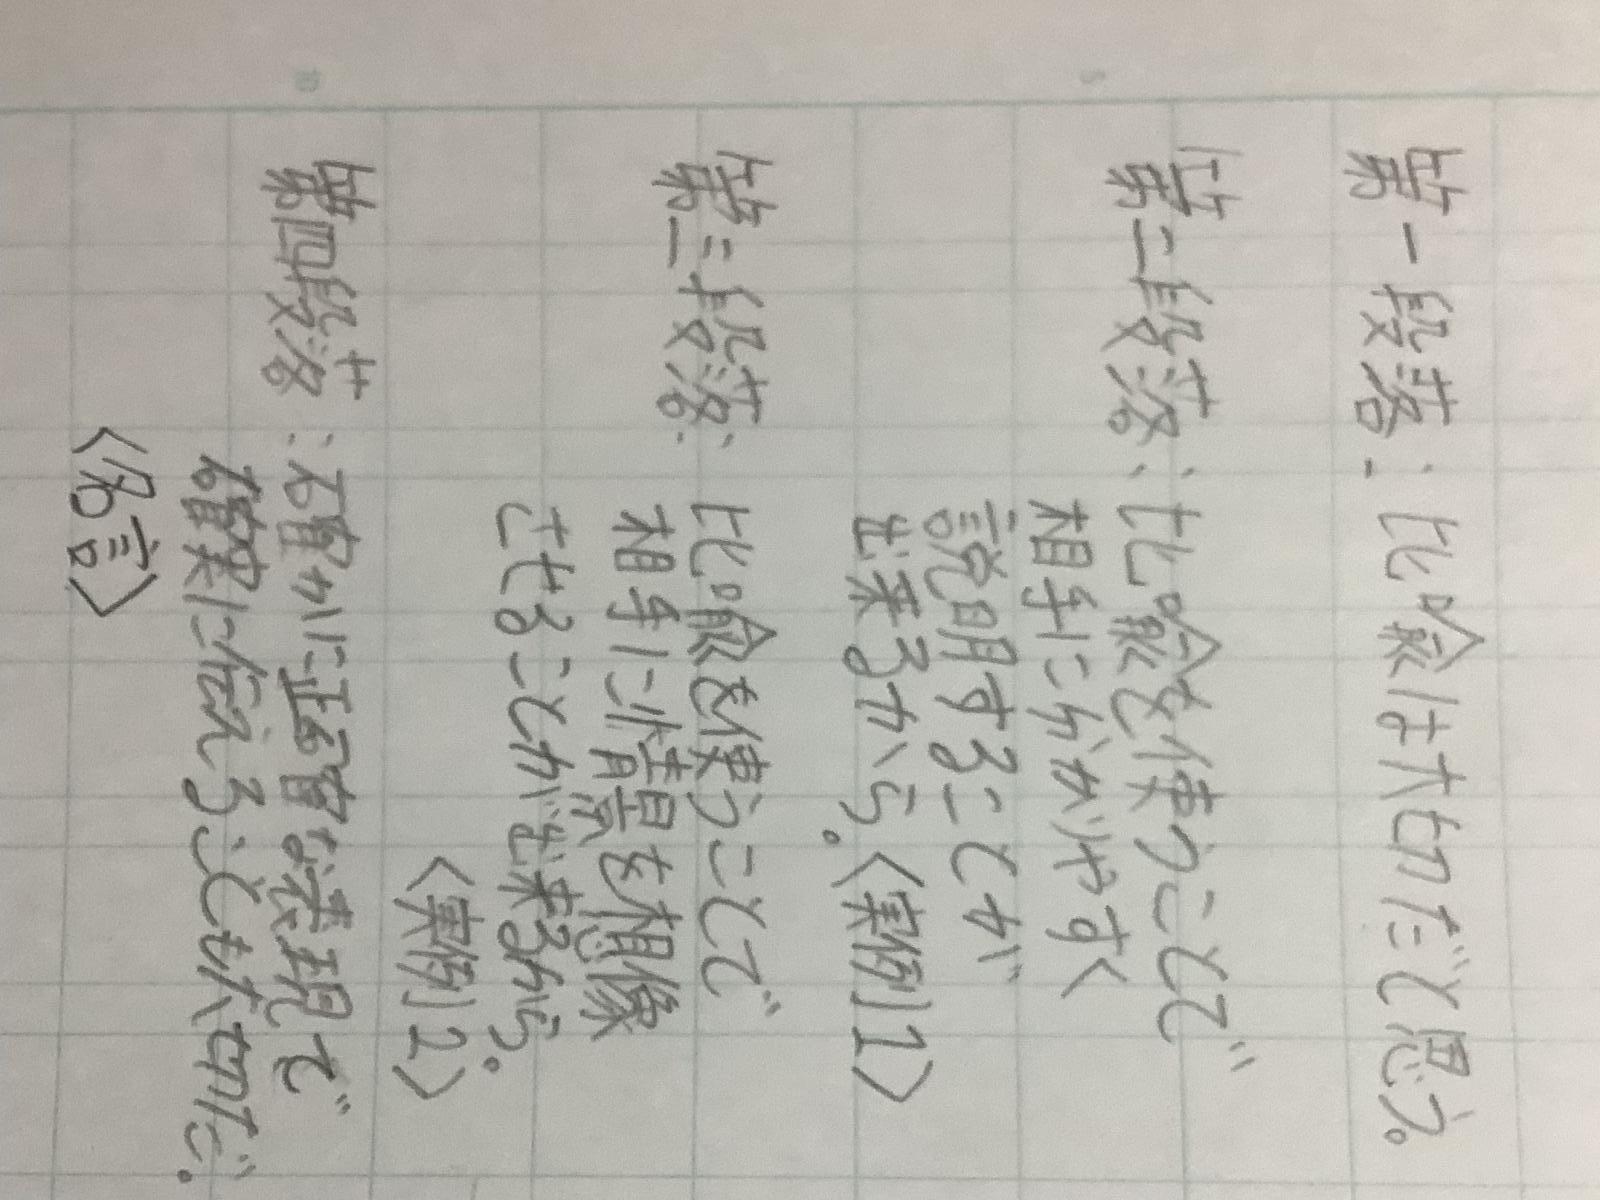 第一段落:比喩は大切だと思う。
第二段落:比喩を使うことで
相手に分かりやすく
説明することが
出来るから。〈実例1〉
第三段落:比喩を使うことで
相手に情景を想像
させることが出来るから。
〈実例2〉
第四段落:確かに正確な表現で
確実に伝えることも大切だ。
〈名言〉